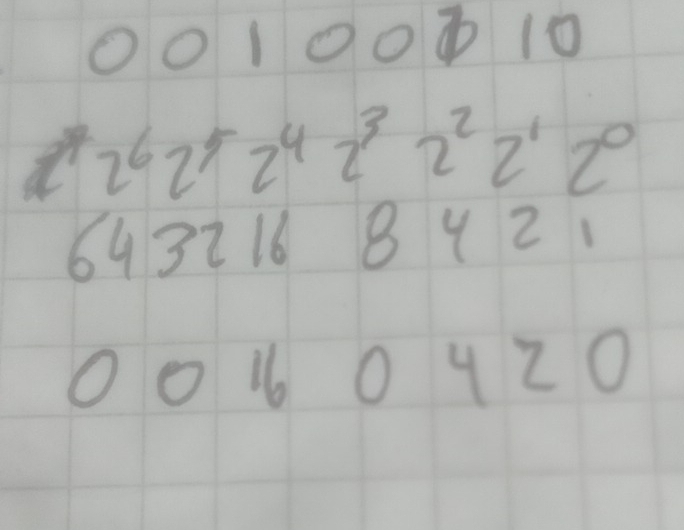 0 0 1 0 0 1 1 0
2⁶ 2⁵ 2⁴ 2³ 2² 2¹ 2⁰
64 32 16 8 4 2 1
0 0 16 0 4 2 0